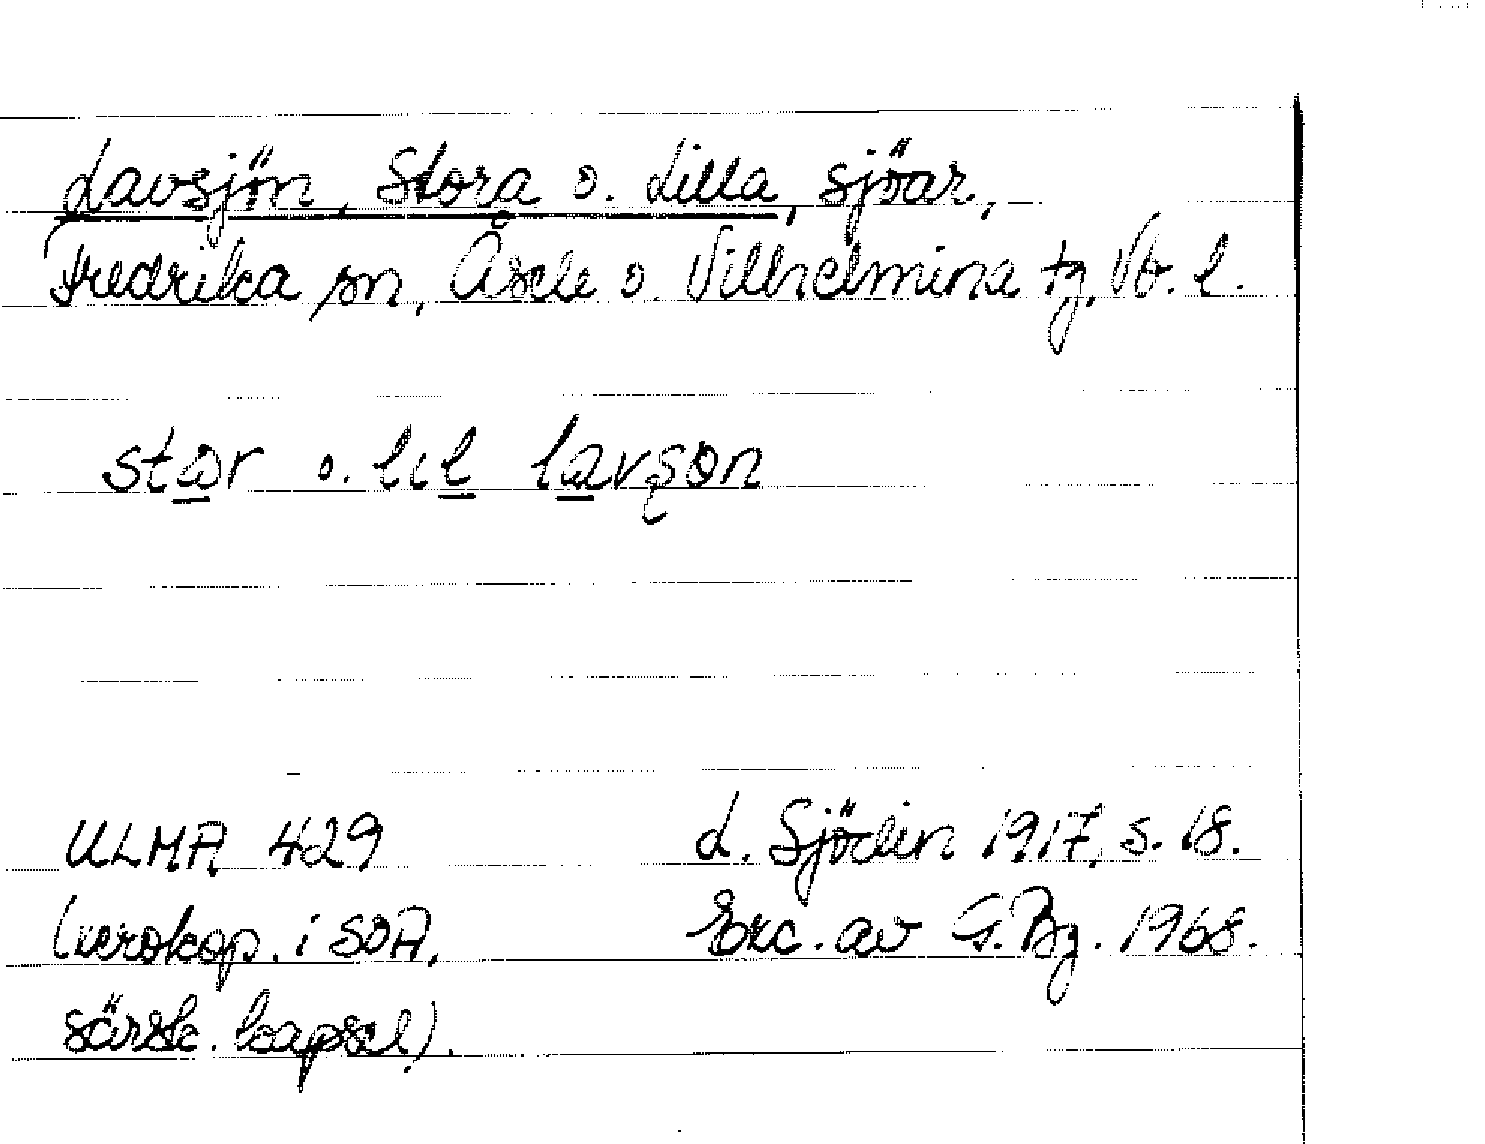 Lavsjön, Stora o. Lilla, sjöar,
Fredrika sn, Åsele o. Vilhelmina tg, Vb. l.
o. lil
ULMA 429
L. Sjödin 1917, s. 18.
(xerokop. i SOA,
Exc. av G. Bg. 1968.
särsk. kapsel).